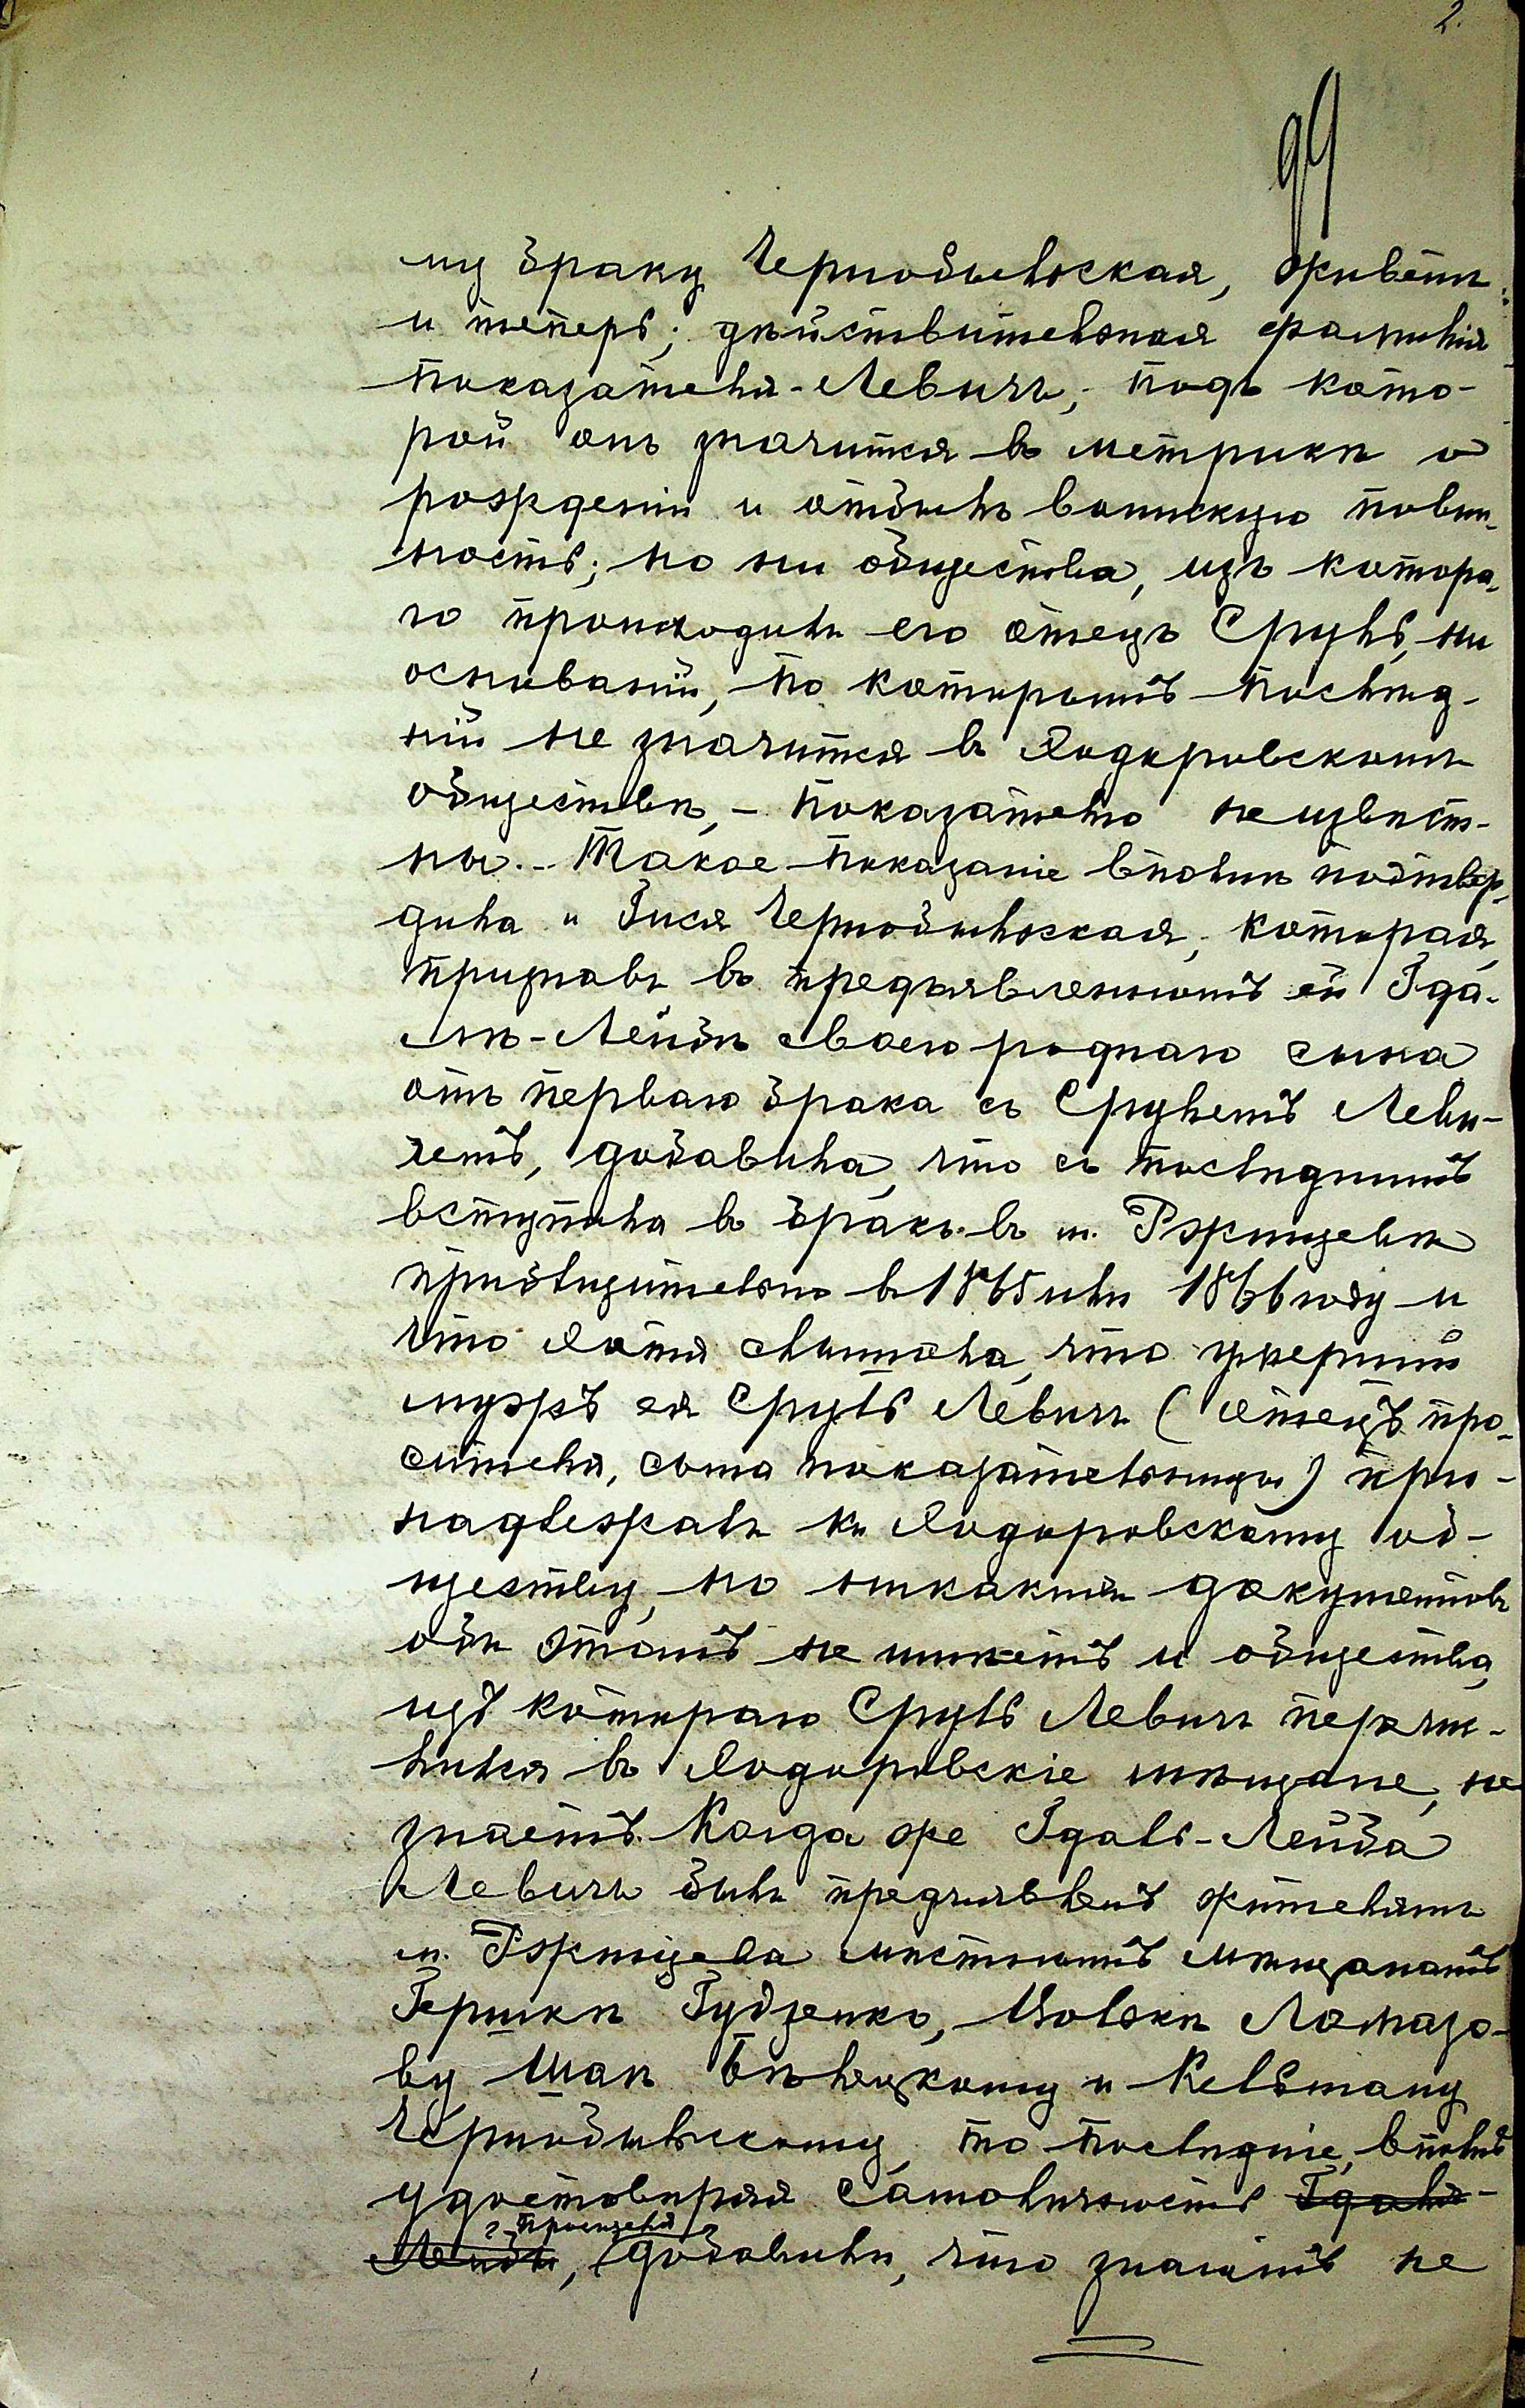 2.
99
му браку Чернобыльская, живетъ
и теперь; дѣйствительная фамилія
показателя - Левичъ, подъ кото-
рой онъ значится въ метрикѣ о
рожденіи и отбылъ воинскую повин-
ность; но ни общества, изъ котора-
го происходилъ его отецъ Сруль, ни
основаній, по которымъ послѣд-
ній не значится въ Ходоровскомъ
обществѣ, - показателю неизвѣст-
ны. - Такое показаніе вполнѣ подтвер-
дила и Гися Чернобыльская, которая,
признавъ въ предъявленномъ ей Гда-
лѣ-Лейбѣ своего роднаго сына
отъ перваго брака съ Срулемъ Леви-
чемъ, добавила, что съ послѣднимъ
вступила въ бракъ въ м. Ржищевѣ
приблизительно въ 1865 или 1866 году и
что хотя слышала, что умершій
мужъ ея Сруль Левичъ (отецъ про-
сителя, сына показательницы) при-
надлежалъ къ Ходоровскому об-
ществу, но никакихъ документовъ
объ этомъ не имѣетъ и общества,
изъ котораго Сруль Левичъ перечи-
лился въ Ходоровскіе мѣщане, не
знаетъ. Когда же Гдаль-Лейба
Левичъ былъ предъявленъ жителямъ
м. Ржищева мѣстнымъ мѣщанамъ
Гершкѣ Гудзенко, Іолькѣ Ломазо-
ву Шаѣ Бѣлецкому и Кельману
Чернобыльскому, то послѣдніе, вполнѣ
удостовѣряя самоличность Гдаля-
Лейбы, просителя добавили, что знаютъ не